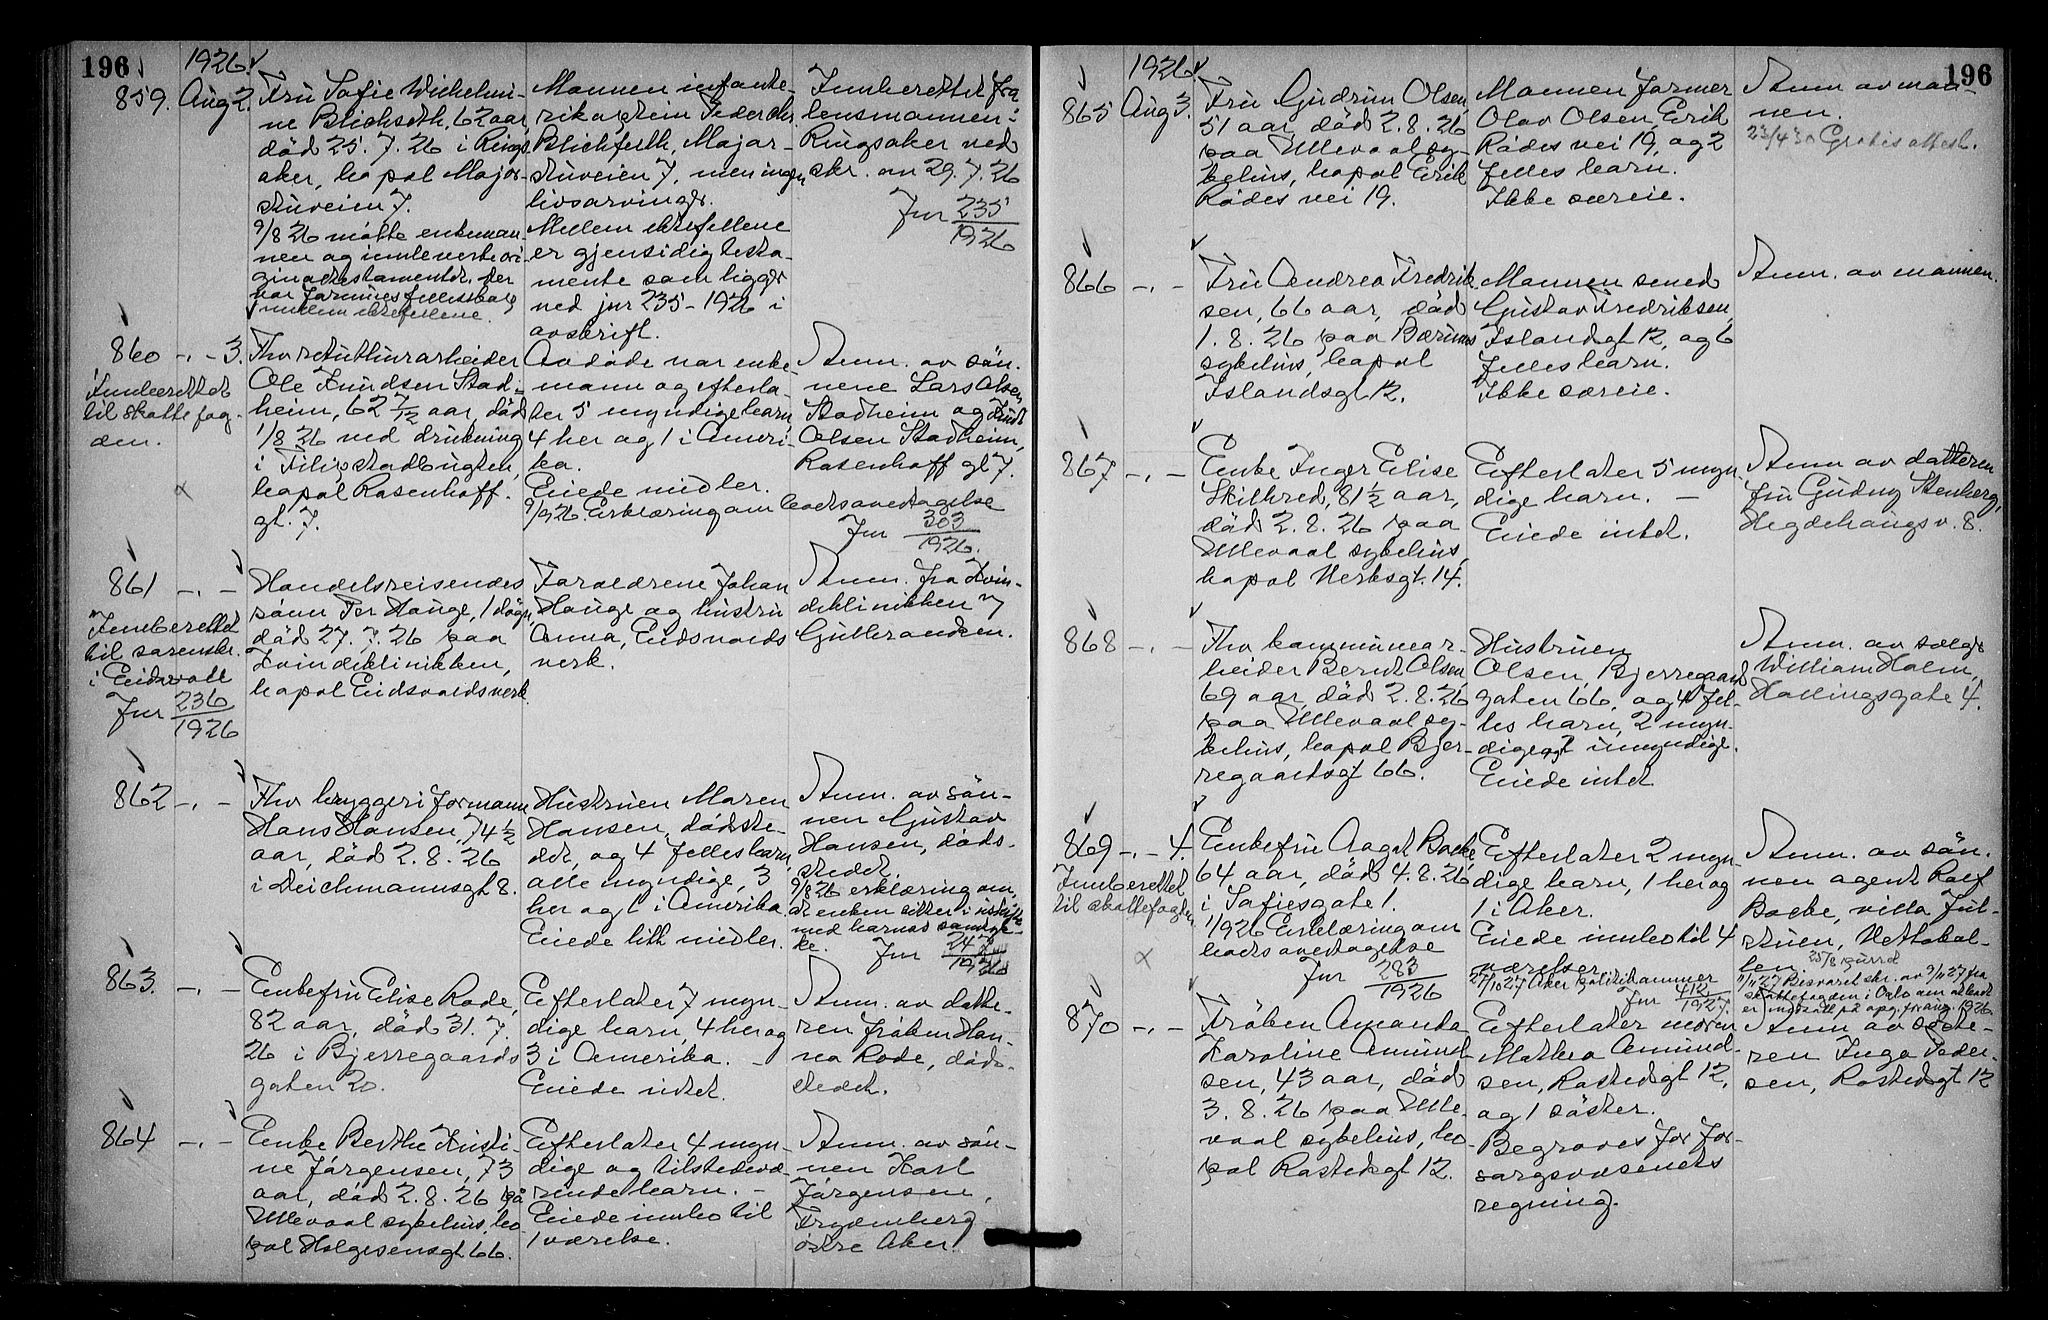 196
1926.
859. Aug 2.
Fru Sofie Wilhelmi-
ne Blichfeldt, 62 aar,
död 25.7.26 i Rings-
aker, bopæl Major-
stuveien 7.
9/8 26 mötte enkeman-
nen og innleverte ori-
ginaltestamentet. Der
var formues felleskap
mellem ektefellene.
Mannen infante-
Mannen, Major-
stuveien 7, men ingen
livsarvinger.
Mellem ektefellene
er gjensidig testa-
mente som ligger
ved jnr 235-1926 i
avskrift.
Innberettet fra
lensmannen i
Ringsaker ved
skr. av 29.7.26
Jnr 235/1926
860 -.- 3.
Innberettet
til skattefog-
den.
Fhv skulturarbeider
Ole Knudsen Stad-
heim, 62 7/12 aar, död
1/8 26 ved drukning
i Filipstadbugten,
bopæl Rosenhoff-
gt. 7.
Avdöde var enke-
mann og efterla-
ter 5 myndige barn
4 her og 1 i Ameri-
ka.
Eiede midler.
9/9 26. Erklæring om boets overtagelse
Jnr 303/1926.
Anm. av sön-
nene Lars Olsen
Stadheim og Knut
Olsen Stadheim,
Rosenhoff gt 7.
861 -.-
Innberettet
til sorenskr.
i Eidsvoll
Jnr 236/1926
Handelsreisendes
sönn Per Hauge, 1 dögn,
död 27.7.26 paa
Kvindeklinikken,
bopæl Eidsvoldsverk.
Foreldrene Johan
Hauge og hustru
Anna, Eidsvolds
verk.
Anm. fra Kvin-
deklinikken v/
Gulbrandsen.
862 -.-
Fhv bryggeriformann
Hans Hansen, 74 1/2
aar, död 2.8.26
i Deichmannsgt 8.
Hustruen Maren
Hansen, dödste-
det, og 4 felles barn,
alle myndige, 3
her og 1 i Amerika.
Eiede litt midler.
Anm. av sön-
nen Gustav
Hansen, döds-
stedet.
9/8 26 erklæring om
at enken sitter i uskifte
med barnas samtyk-
ke. Jnr 247/1926
863. -.-
Enkefru Elise Rode,
82 aar, död 31.7.
26 i Bjerregaards
gaten 20.
Efterlater 7 myn-
dige barn, 4 her og
3 i Amerika. -
Eiede intet.
Anm. av datte-
ren fröken Han-
na Rode, döds-
stedet.
864 -.-
Enke Berthe Kristi-
ne Jörgensen, 73
aar, död 2.8.26 på
Ullevaal sykehus, bo-
pæl Holgesensgt 66.
Efterlater 4 myn-
dige og tilstedevæ-
rende barn. -
Eiede innbo til
1 værelse.
Anm. av sön-
nen Karl
Jörgensen,
Frydenberg
östre Aker.
196
1926.
865 Aug 3.
Fru Gudrun Olsen,
51 aar, död 2.8.26
paa Ullevaal sy-
kehus, bopæl Erik
Rödes vei 19.
Mannen former
Olav Olsen, Erik
Rödes vei 19, og 2
felles barn.
Ikke særeie.
Anm. av man-
nen.
23/4 30 Gratis attest.
866 -.-
Fru Andrea Fredrik-
sen, 66 aar, död
1.8.26 paa Bærums
sykehus, bopæl
Islandsgt 12.
Mannen smed
Gustav Fredriksen,
Islandsgt 12, og 6
felles barn.
Ikke særeie.
Anm. av mannen.
867 -.-
Enke Inger Elise
Skilbred, 81 1/2 aar,
död 2.8.26 paa
Ullevaal sykehus,
bopæl Verksgt. 14.
Efterlater 5 myn-
dige barn. -
Eiede intet.
Anm. av datteren
fru Gudny Stenberg,
Hegdehaugsv. 8.
868 -.-
Fhv kommunear-
beider Bernt Olsen,
69 aar, död 2.8.26
paa Ullevaal sy-
kehus, bopæl Bjer-
regaardsgt 66.
Hustruen
Olsen, Bjerregaard
gaten 66, og 4 fel-
les barn, 2 myn-
dige og 2 umyndige.
Eiede intet
Anm. av selger
William Holm,
Hallingsgate 4.
869 -.- 4.
Innberettet
til skattefogden
Enkefru Aagot Backe
64 aar, död 4.8.26
i Sofiesgate 1.
1926 Erklæring om
boets overtagelse
Jnr 283/1926
Efterlater 2 myn-
dige barn, 1 her og
1 i Aker.
Eiede innbo til 4
værelser
27/10 27 Aker politikammer
Jnr 412/1927.
Anm. av sön-
nen agent Rolf
Backe, villa Jul-
stuen, Vettakol-
len
25/8 purret
9/11 27 Besvaret skr. av 7/11 27 fra
skattefogden i Oslo om at boet
870 -.-
Fröken Amanda
Karoline Amund-
sen, 43 aar, död
3.8.26 paa Ulle-
vaal sykehus, bo-
pæl Rostedsgt 12.
Efterlater moren
Mathea Amund-
sen, Rostedsgt 12,
og 1 söster.
Begraves for for-
sorgsvesenets
regning.
Anm. av söste-
ren Inga Peder-
sen, Rostedsgt 12